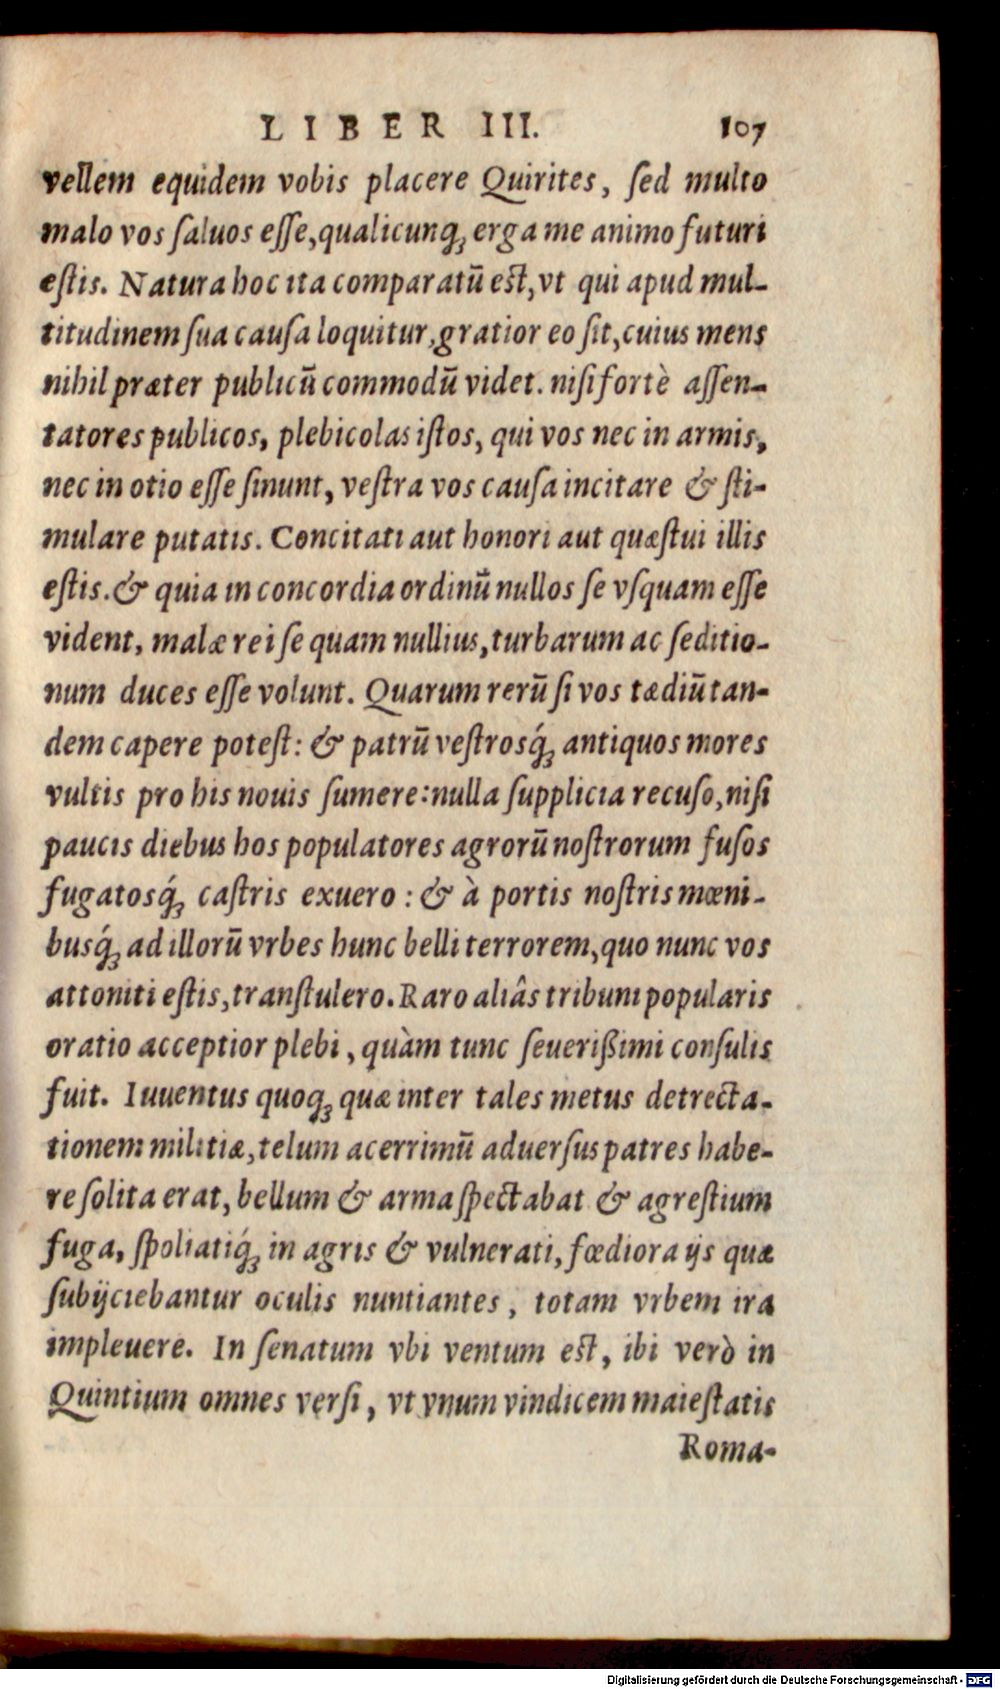 LIBER III. 107
vellem equidem vobis placere Quirites, ſed multo
malo vos ſaluos eſſe,qualicunqꝫ erga me animo futuri
eſtis. Natura hoc ita comparatū eſt,vt qui apud mul-
titudinem ſua cauſa loquitur,gratior eo ſit,cuius mens
nihil præter publicū commodū videt. niſi fortè aſſen-
tatores publicos, plebicolas iſtos, qui vos nec in armis,
nec in otio eſſe ſinunt, veſtra vos cauſa incitare & ſti-
mulare putatis. Concitati aut honori aut quæſtui illis
eſtis. & quia in concordia ordinū nullos ſe vſquam eſſe
vident, malæ rei ſe quam nullius,turbarum ac ſeditio-
num duces eſſe volunt. Quarum rerū ſi vos tædiū tan-
dem capere poteſt: & patrū veſtrosq́ꝫ antiquos mores
vultis pro his nouis ſumere:nulla ſupplicia recuſo,niſi
paucis diebus hos populatores agrorū noſtrorum fuſos
fugatosq́ꝫ caſtris exuero : & à portis noſtris mœni-
busq́ꝫ ad illorū vrbes hunc belli terrorem,quo nunc vos
attoniti eſtis,tranſtulero. Raro aliâs tribuni popularis
oratio acceptior plebi, quàm tunc ſeuerißimi conſulis
fuit. Iuuentus quoqꝫ quæ inter tales metus detrecta-
tionem militiæ,telum acerrimū aduerſus patres habe-
re ſolita erat, bellum & arma ſpectabat & agreſtium
fuga, ſpoliatiq́ꝫ in agris & vulnerati, fœdiora ijs quæ
ſubijciebantur oculis nuntiantes, totam vrbem ira
impleuere. In ſenatum vbi ventum eſt, ibi verò in
Quintium omnes verſi, vt vnum vindicem maieſtatis
Roma-
Digitalisierung gefördert durch die Deutsche Forschungsgemeinschaft - DFG